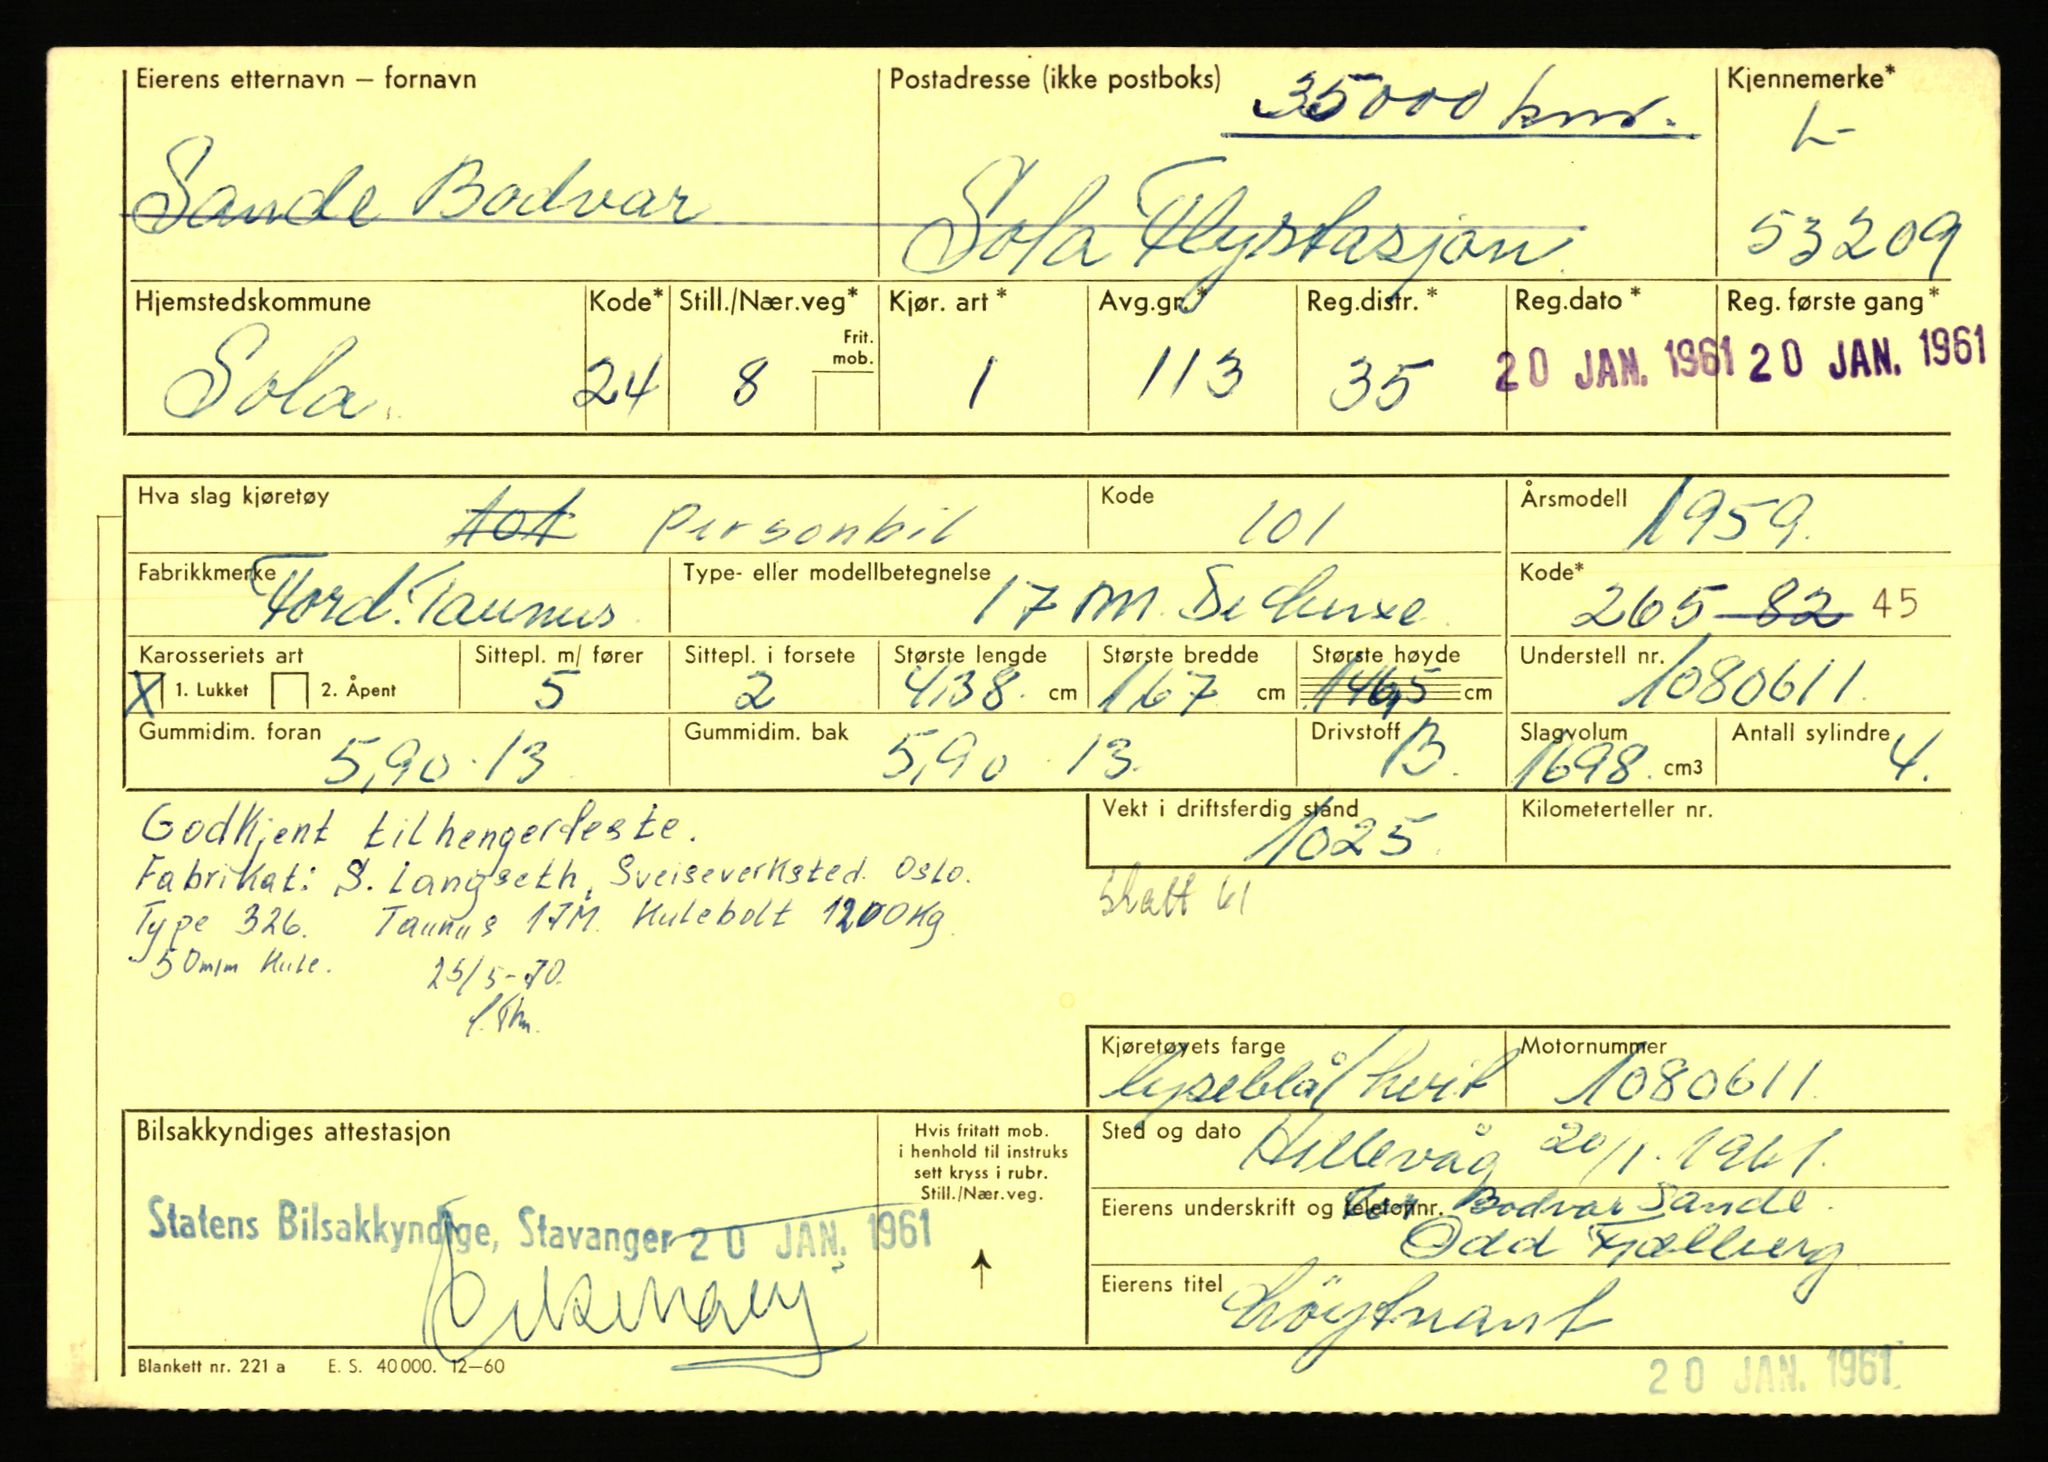 Eierens etternavn – fornavn
Postadresse (ikke postboks)
35000 km.
Kjennemerke*
L-
53209
Sande Bodvar
Sola Flystasjon
Hjemstedskommune
Kode*
Still./Nær.veg*
Frit. mob.
Kjør. art*
Avg.gr.*
Reg.distr.*
Reg.dato*
Reg. første gang*
Sola.
24
8
1
113
35
20 JAN. 1961
20 JAN. 1961
Hva slag kjøretøy
Personbil
Kode
101
Årsmodell
1959.
Fabrikkmerke
Ford. Taunus.
Type- eller modellbetegnelse
17 M. De Luxe
Kode*
265 - 82 45
Karosseriets art
X 1. Lukket
2. Åpent
Sittepl. m/ fører
5
Sittepl. i forsete
2
Største lengde
438 cm
Største bredde
167 cm
Største høyde
146,5 cm
Understell nr.
1080611.
Gummidim. foran
5,90 - 13
Gummidim. bak
5,90 - 13.
Drivstoff
B.
Slagvolum
1698. cm3
Antall sylindre
4.
Godkjent tilhengerfeste.
Fabrikat: S. Langseth, Sveiseverksted. Oslo.
Type 326. Taunus 17M. Kulebolt 1200Kg.
50m/m Kule. 25/5-70.
Vekt i driftsferdig stand
1025.
Kilometerteller nr.
Skatt 61
Kjøretøyets farge
lyseblå/hvit
Motornummer
1080611.
Bilsakkyndiges attestasjon
Hvis fritatt mob.
i henhold til instruks
sett kryss i rubr.
Still./Nær.veg.
Statens Bilsakkyndige, Stavanger 20 JAN. 1961
Sted og dato
Hillevåg 20/1. 1961.
Eierens underskrift og telefonnr.
for Bodvar Sande.
Odd Fjælberg
Eierens titel
Løytnant
Blankett nr. 221 a E. S. 40 000. 12–60
20 JAN. 1961